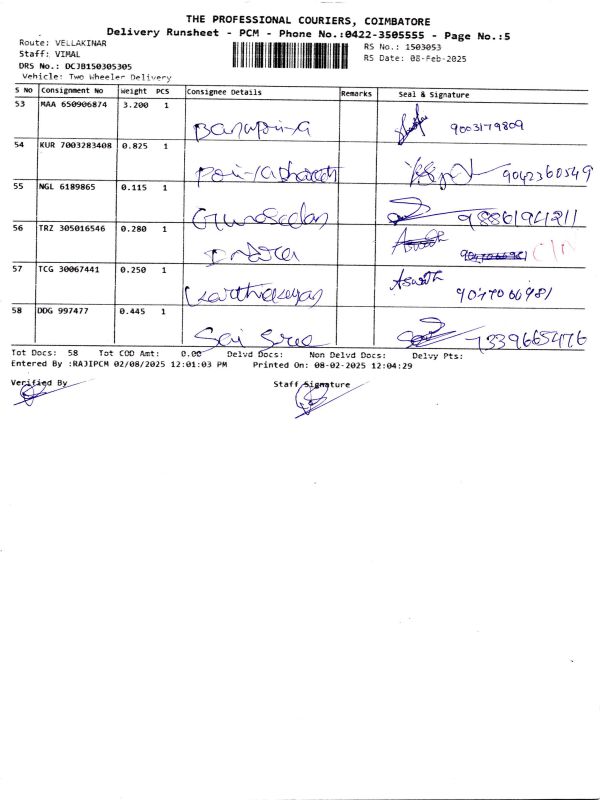 THE PROFESSIONAL COURIERS, COIMBATORE
Delivery Runsheet - PCM - Phone No.:0422-3505555 - Page No.:5
Route: VELLAKINAR
RS No.: 1503053
Staff: VIMAL
RS Date: 08-Feb-2025
DRS No.: DCJB150305305
Vehicle: Two Wheeler Delivery
S No Consignment No Weight PCS Consignee Details Remarks Seal & Signature
53 MAA 650906874 3.200 1
9003179809
54 KUR 7003283408 0.825 1
9042360549
55 NGL 6189865 0.115 1
56 TRZ 305016546 0.280 1
Aswath
57 TCG 30067441 0.250 1
Karthikeyan Aswath 9047066981
58 DDG 997477 0.445 1
Sai Sree 7339665476
Tot Docs: 58 Tot COD Amt: 0.00 Delvd Docs: Non Delvd Docs: Delvy Pts:
Entered By :RAJIPCM 02/08/2025 12:01:03 PM Printed On: 08-02-2025 12:04:29
Verified By Staff Signature